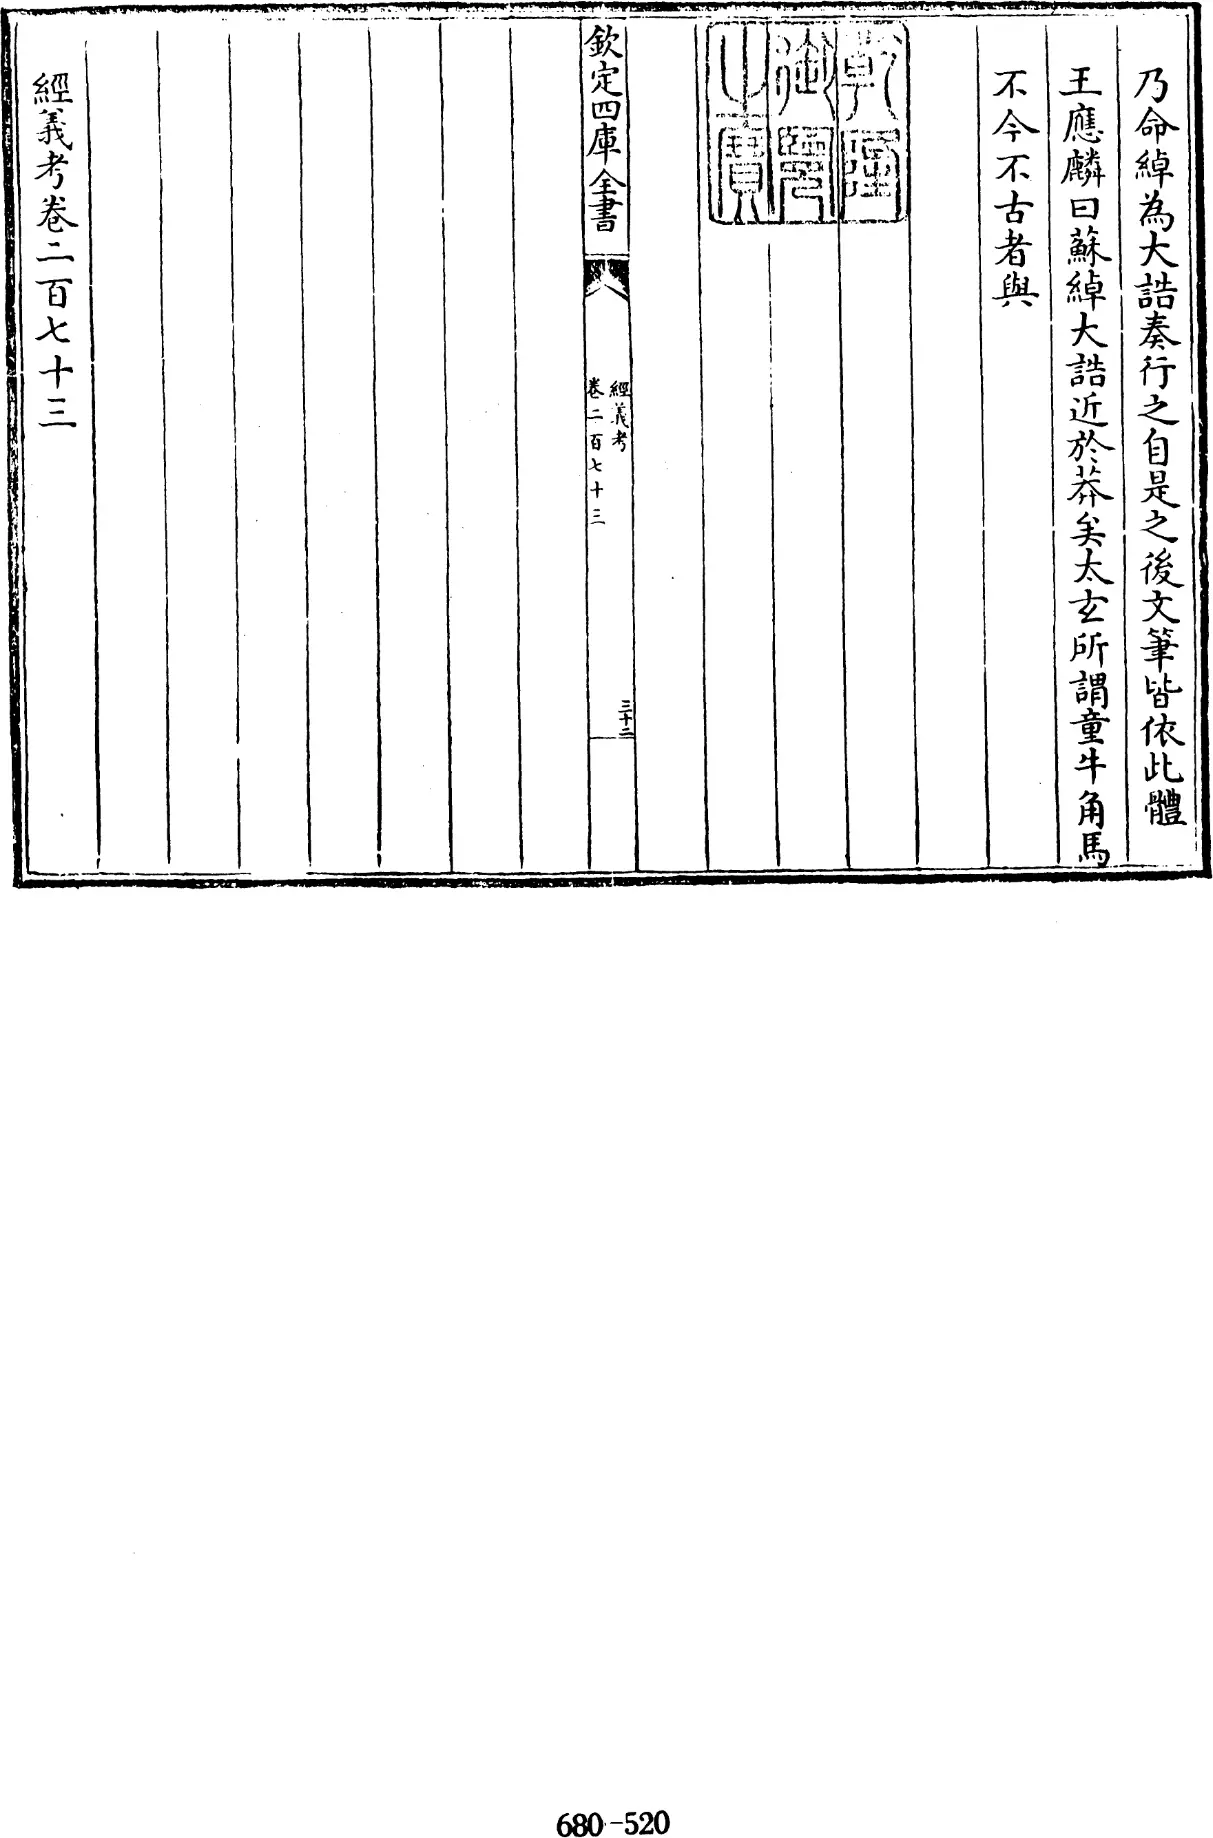 乃命綽為大誥奏行之自是之後文筆皆依此體
王應麟曰蘇綽大誥近於莽矣太玄所謂童牛角馬
不今不古者與
乾隆
御覽
之寶
欽定四庫全書
經義考
卷二百七十三
三十二
經義考卷二百七十三
680-520